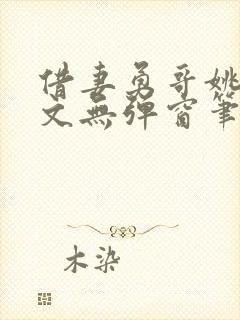 借妻勇哥姚
文無彈窗筆
木染